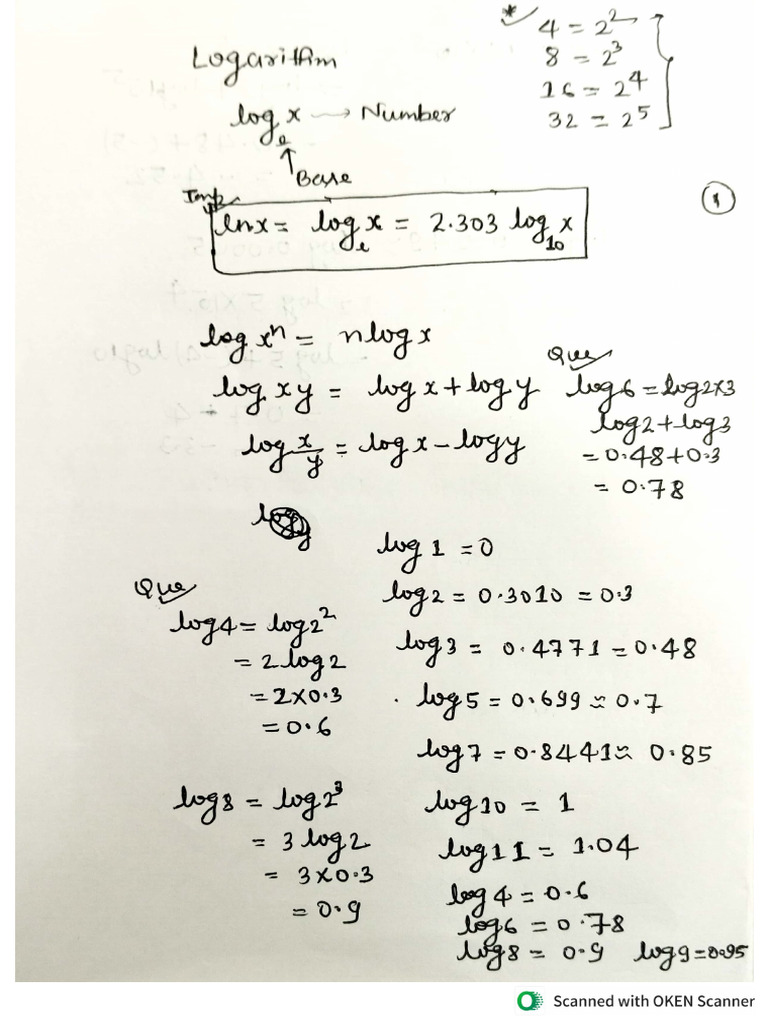 * 4 = 2²
8 = 2³
16 = 2⁴
32 = 2⁵
Logarithm
logₑ x → Number
↑ Base
Imp
lnx = logₑ x = 2.303 log₁₀ x
1
log xⁿ = n log x
log xy = log x + log y
log x/y = log x − log y
Que
log 6 = log 2x3
log 2 + log 3
= 0.48 + 0.3
= 0.78
log 1 = 0
log 2 = 0.3010 = 0.3
log 3 = 0.4771 = 0.48
log 5 = 0.699 ≈ 0.7
log 7 = 0.8441 ≈ 0.85
log 10 = 1
log 11 = 1.04
log 4 = 0.6
log 6 = 0.78
log 8 = 0.9 log 9 = 0.95
Que
log 4 = log 2²
= 2 log 2
= 2 x 0.3
= 0.6
log 8 = log 2³
= 3 log 2
= 3 x 0.3
= 0.9
Scanned with OKEN Scanner